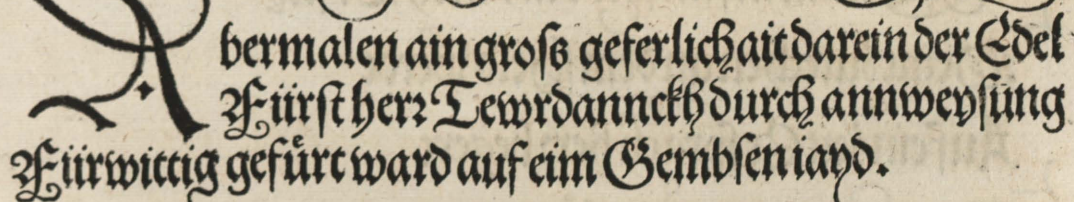 Abermalen ain gross geferlichait darein der Edel
Fürst herr Tewrdannckh durch annweysung
Fürwittig gefürt ward auf eim Gembsen iayd.